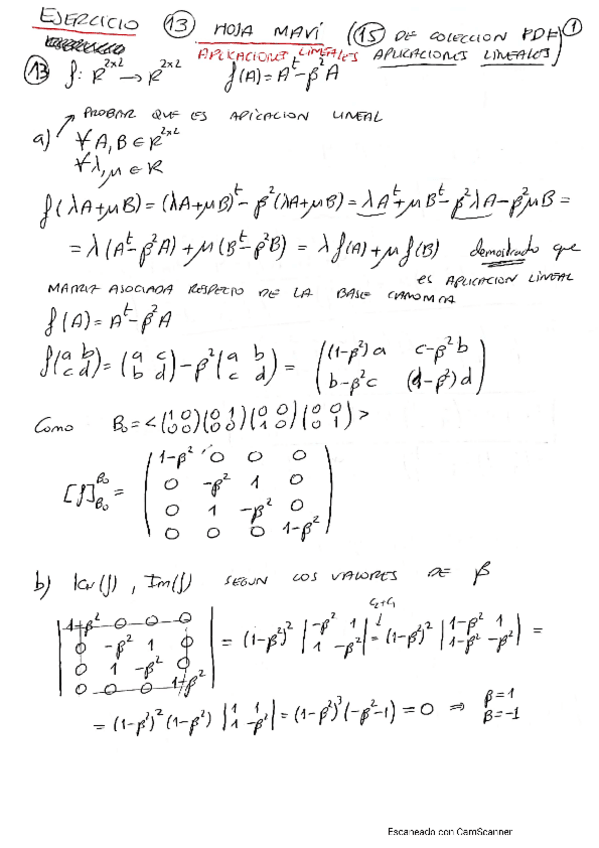 EJERCICIO 13 HOJA MAVÍ (15 DE COLECCION PDF) 1
APLICACIONES LINEALES APLICACIONES LINEALES
13 f: R^{2x2} → R^{2x2} f(A) = A^t - β²A
PROBAR QUE ES APLICACION LINEAL
a) ∀ A, B ∈ R^{2x2}
∀ λ, μ ∈ R
f(λA+μB) = (λA+μB)^t - β²(λA+μB) = λA^t + μB^t - β²λA - β²μB =
= λ(A^t - β²A) + μ(B^t - β²B) = λ f(A) + μ f(B) demostrado que
es APLICACION LINEAL
MATRIZ ASOCIADA RESPECTO DE LA BASE CANONICA
f(A) = A^t - β²A
f(a b; c d) = (a c; b d) - β²(a b; c d) = ((1-β²)a c-β²b; b-β²c (d-β²)d)
Como B₀ = <(1 0; 0 0)(0 1; 0 0)(0 0; 1 0)(0 0; 0 1)>
[f]_{B₀}^{B₀} = (1-β² 0 0 0; 0 -β² 1 0; 0 1 -β² 0; 0 0 0 1-β²)
b) Ker(f), Im(f) SEGUN LOS VALORES DE β
|1-β² 0 0 0; 0 -β² 1 0; 0 1 -β² 0; 0 0 0 1-β²| = (1-β²)² |-β² 1; 1 -β²| = (1-β²)² |1-β² 1; 1-β² -β²| =
= (1-β²)² (1-β²) |1 1; 1 -β²| = (1-β²)³ (-β²-1) = 0 ⇒ β=1
β=-1
Escaneado con CamScanner